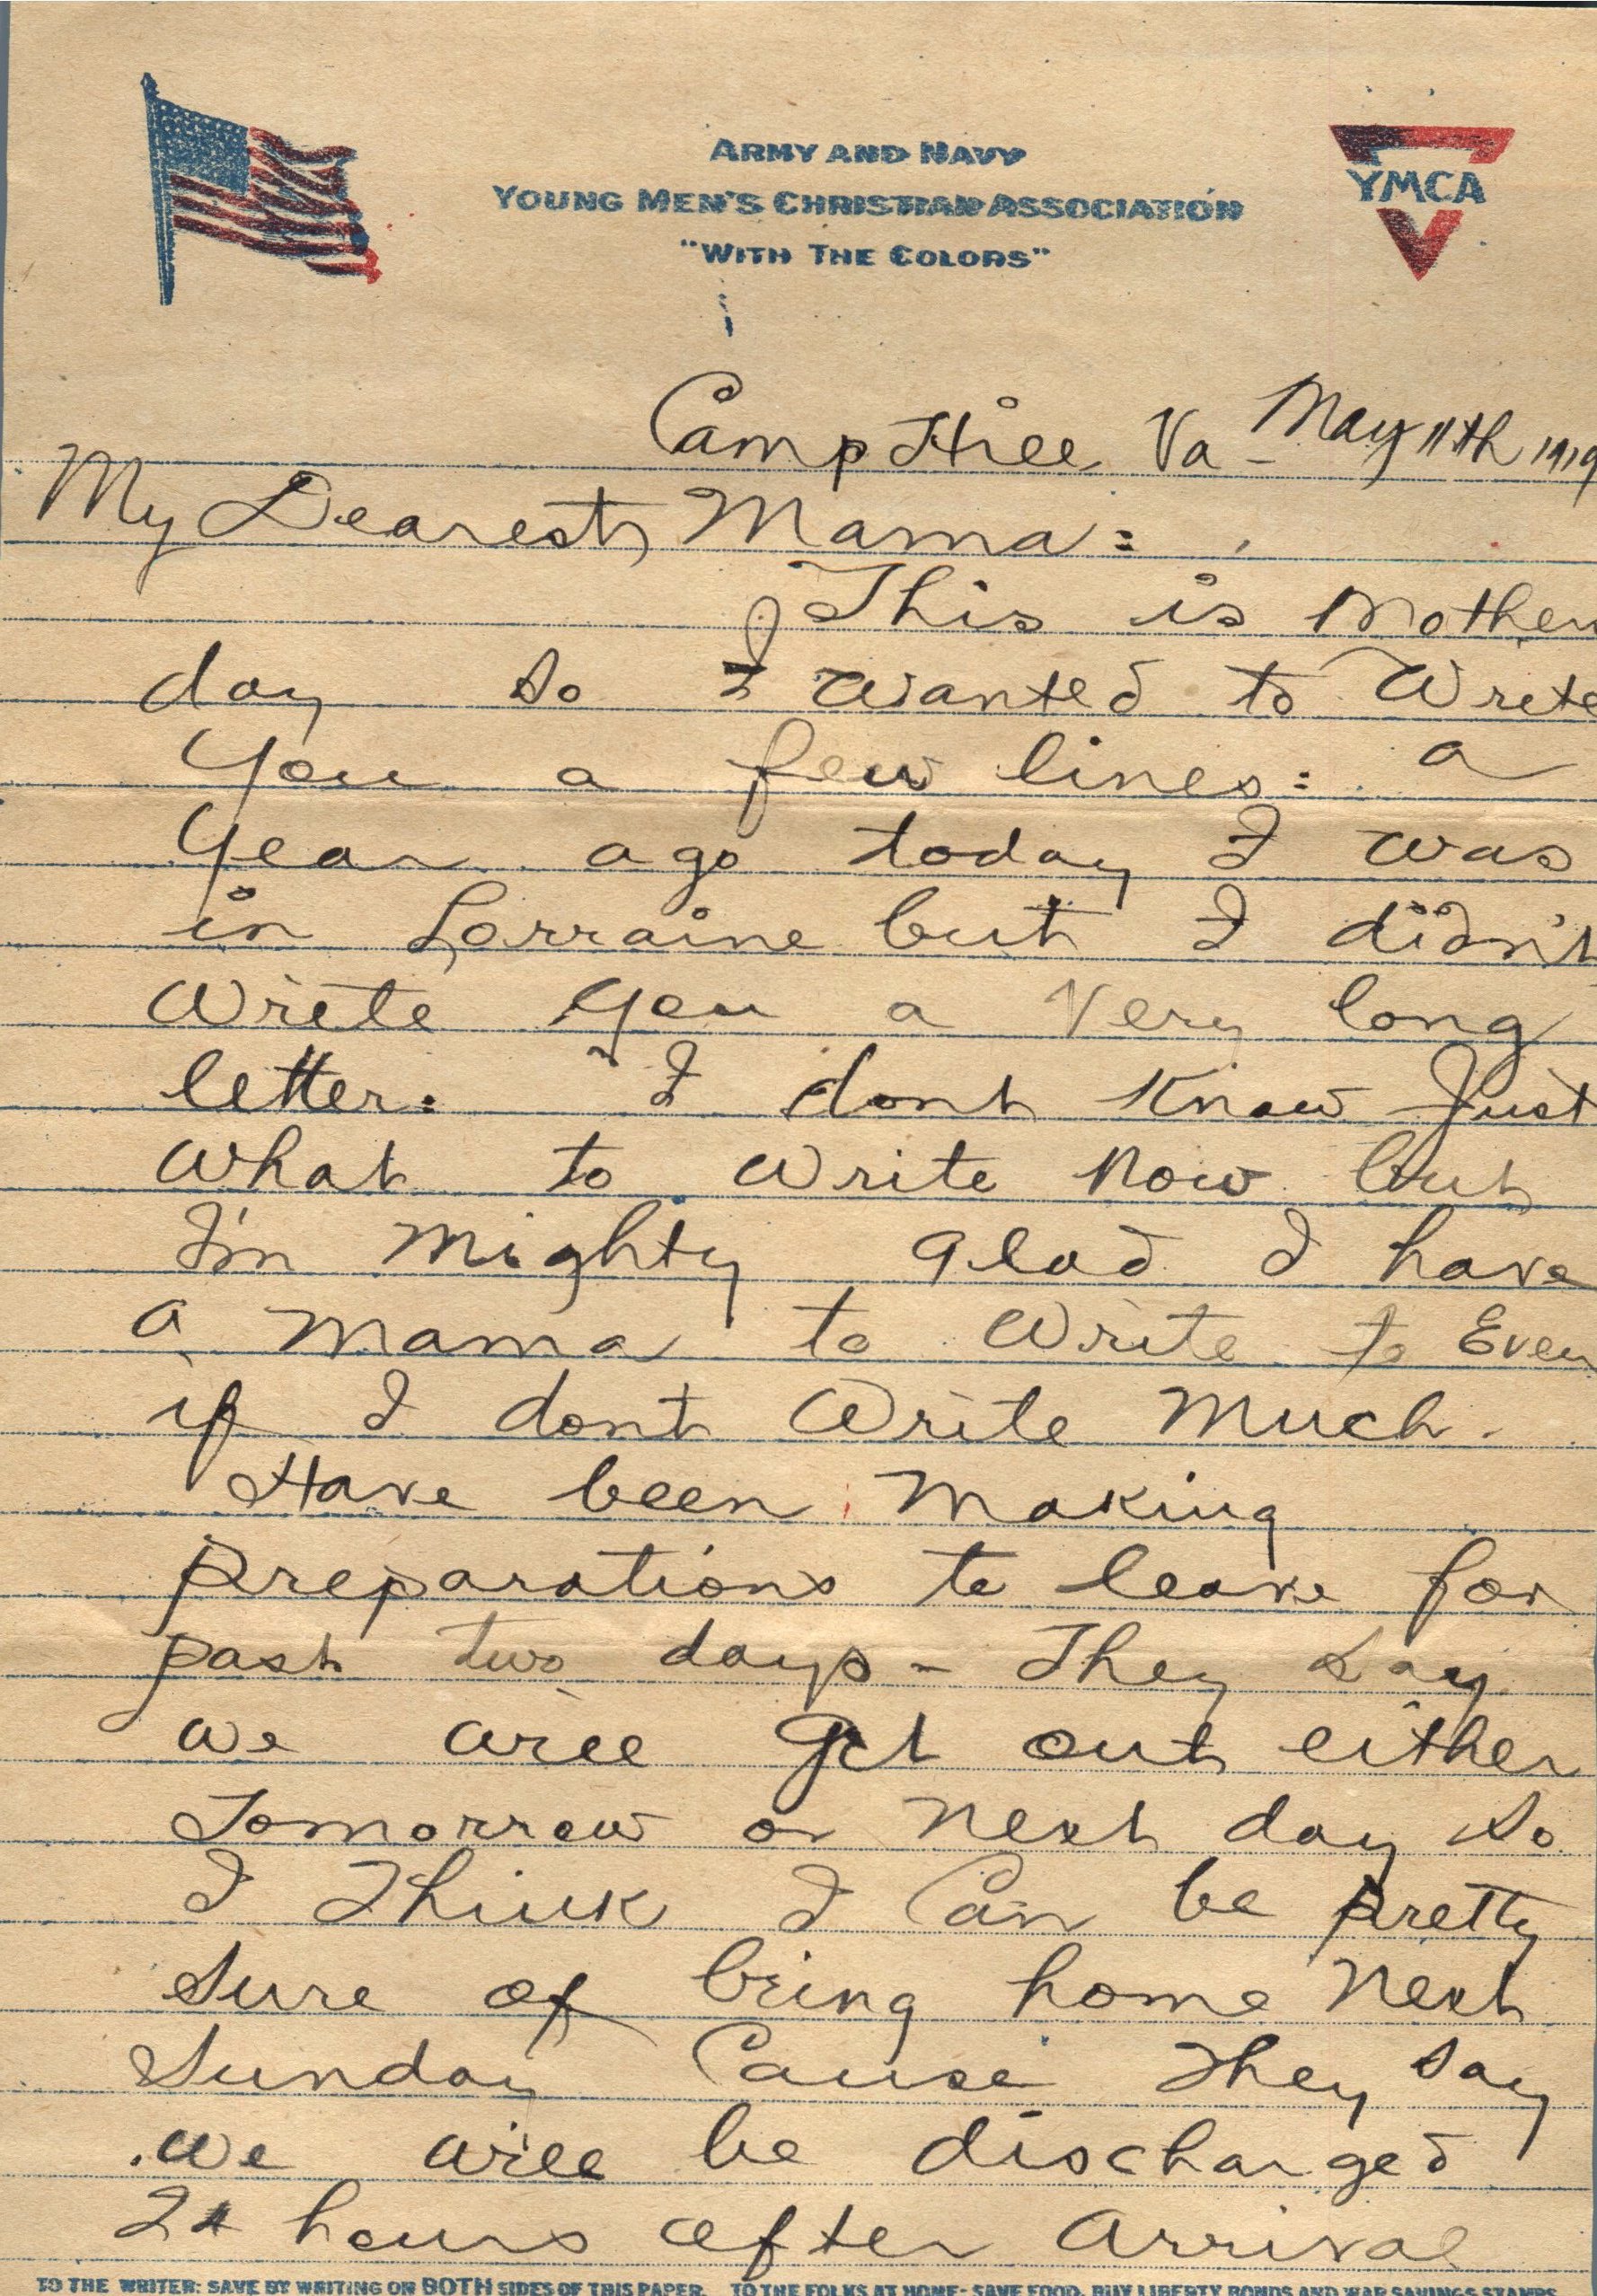 ARMY AND NAVY
YOUNG MEN'S CHRISTIAN ASSOCIATION
"WITH THE COLORS"
YMCA
Camp Hill Va - May 11th 1919
My Dearest Mama:
This is Mother
day so I wanted to Write
You a few lines: a
Year ago today I was
in Lorraine but I didn't
Write You a Very long
letter: I dont Know Just
What to Write Now but
I'm Mighty glad I have
a Mama to Write to Even
if I dont Write Much.
Have been Making
preparations to leave for
past two days - They say
we will get out either
Tomorrow or Next day So
I Think I Can be pretty
Sure of being home Next
Sunday Cause They Say
we will be discharged
24 hours after Arrival
TO THE WRITER: SAVE BY WRITING ON BOTH SIDES OF THIS PAPER. TO THE FOLKS AT HOME: SAVE FOOD, BUY LIBERTY BONDS AND WAR SAVINGS STAMPS